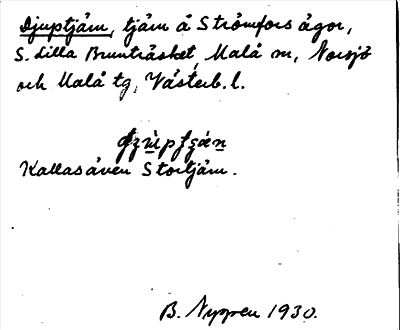 Djuptjärn, tjärn å Strömfors ägor,
S. Lilla Brunträsket, Malå sn, Norsjö
och Malå tg, Västerb. l.
Kallas även Stortjärn.
B. Nyppen 1930.